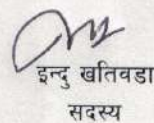 इन्दु खतिवडा
सदस्य